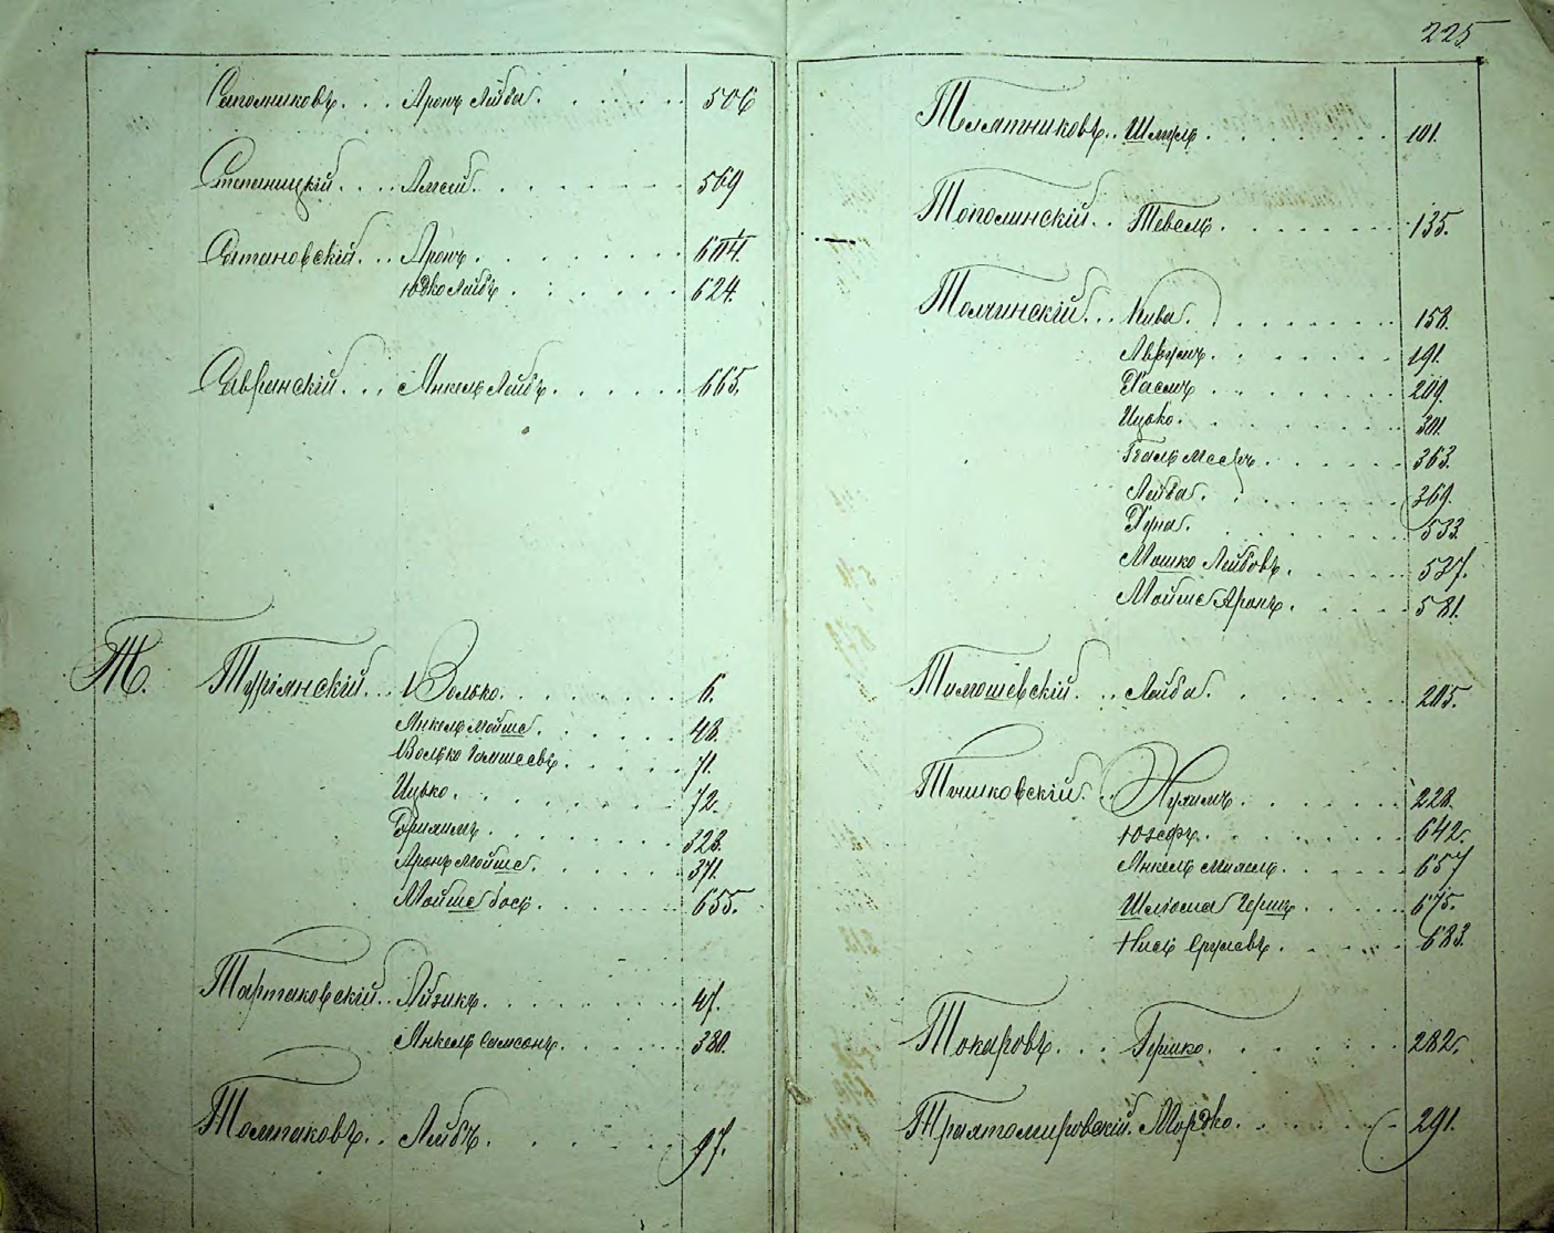 225
Сапожниковъ . . . Аронъ Лейба . . . . . . 506
Степаницкій . . . . . . . . . . 569
Сатановскій . . . Аронъ . . . . . . . .
Юдко Лейбъ . . . . . . 624.
Савранскій . . . Янкель Лейбъ . . . . . . 665.
Т. Туріянскій . . . Волько . . . . . . . 6.
Янкель Мойше . . . . . . 48.
Волько . . . . . 71.
Ицько . . . . . . . . 72.
Фроимъ . . . . . . . 328.
Аронъ Мойше . . . . . . 371.
Мойше Іось . . . . . . 655.
Тартаковскій . . Айзикъ . . . . . . . . 47.
Янкель Самсонъ . . . . . 380.
Толмаковъ . . . Лейбъ . . . . . . 97.
Телятниковъ . . Шмуль . . . . . . . 101.
Тополинскій . . Тевель . . . . . . . 135.
Толчинскій . . . Кива . . . . . . . . 158.
Аврумъ . . . . . . . 191.
Хаемъ . . . . . . . 209.
Ицько . . . . . . . . 301.
Мееръ . . . . . 363.
Лейба . . . . . . . 369.
Хуна . . . . . . . 533.
Мошко Лейбовъ . . . . . 537.
Мойше Аронъ . . . . . 581.
Тимошевскій . . . Лейба . . . . . . 205.
Тышковскій . . . Нухимъ . . . . . . 228.
Юзефъ . . . . . . . . 642.
Янкель Михель . . . . . 657
Шлёома Гершъ . . . . . 675.
Нисъ Срулевъ . . . . . 683.
Токаровъ . . . Гершко . . . . . . . 282.
Трахтомировскій . Мордко . . . . . . 291.